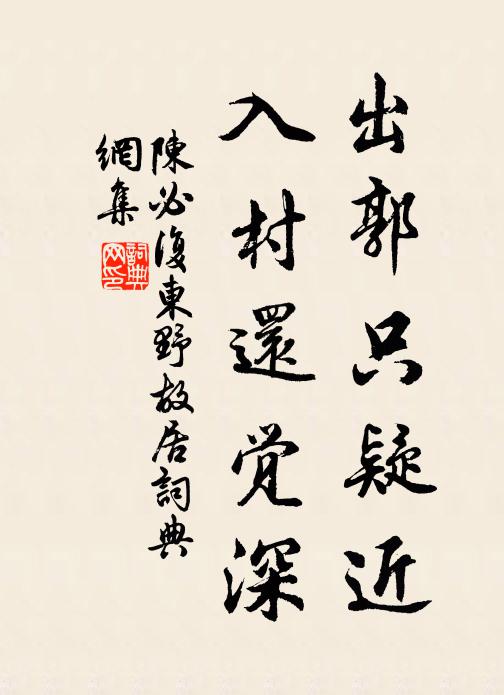 出郭只疑近
入村還覺深
陳必復東野故居詞典
網集
詞典
网印